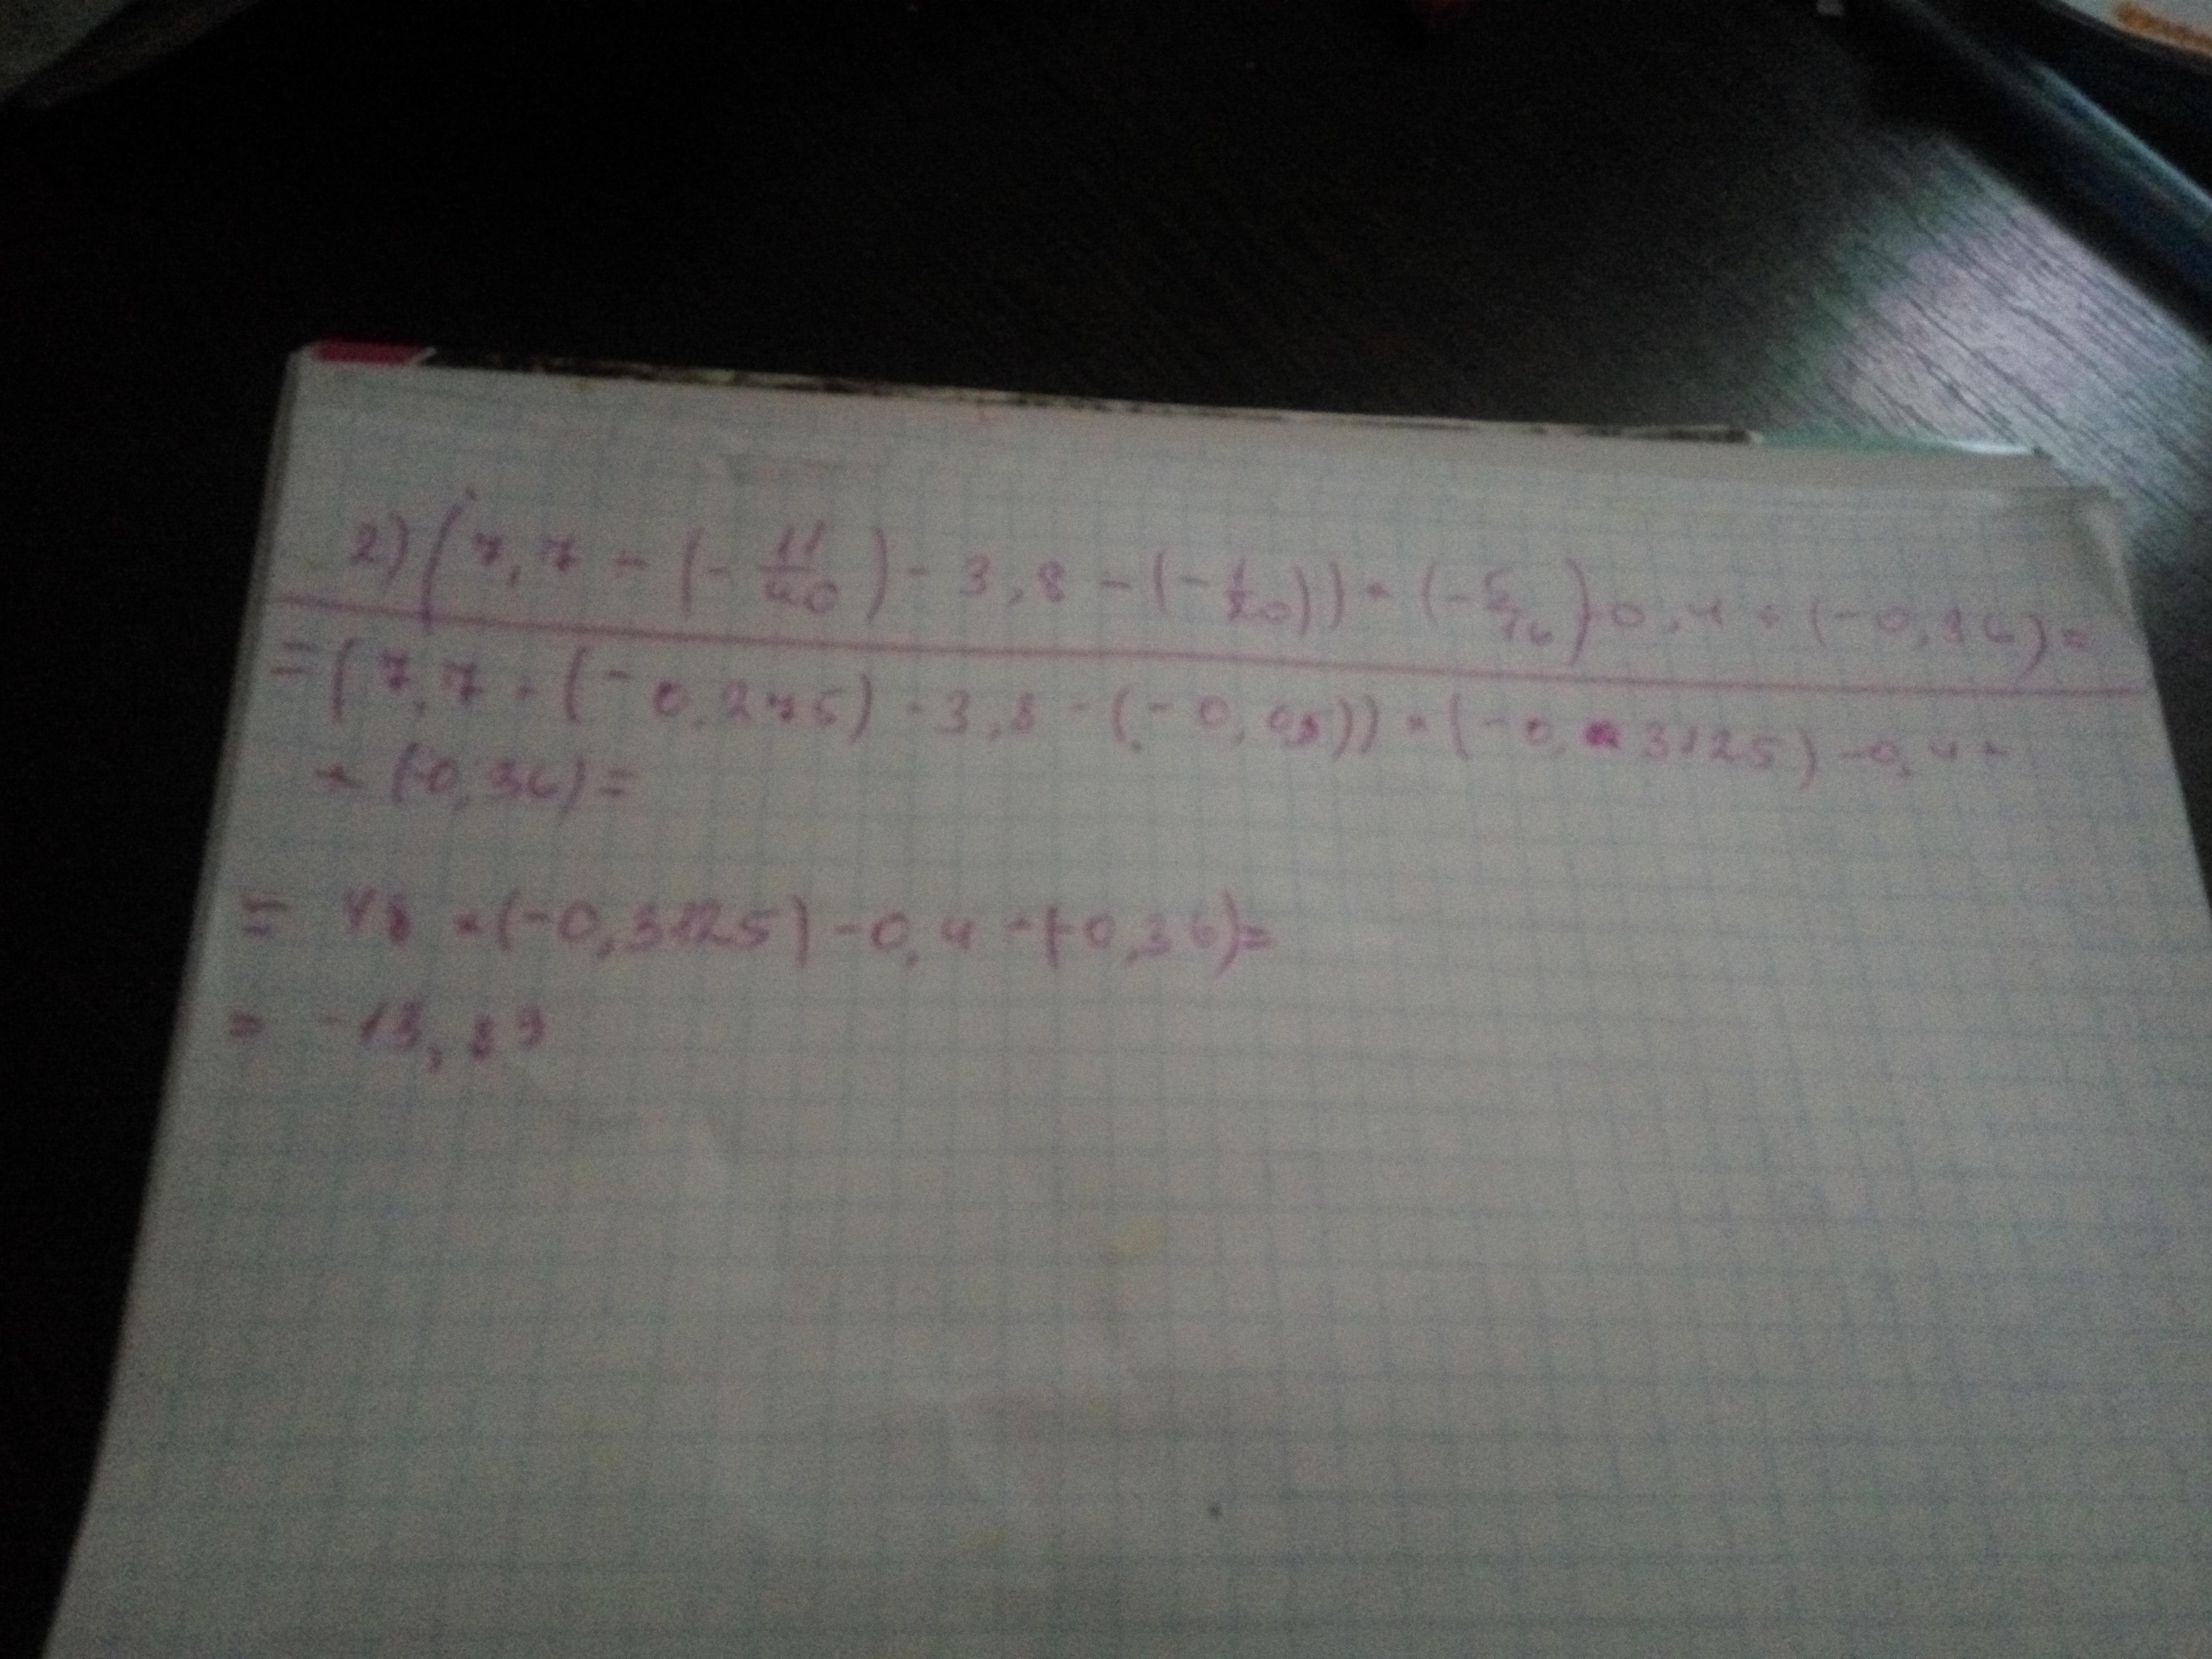 2) (7,7 - (-11/40) - 3,8 - (-1/20)) · (-5/16) - 0,4 · (-0,36) =
= (7,7 - (-0,275) - 3,8 - (-0,05)) · (-0,3125) - 0,4 ·
· (-0,36) =
= 48 · (-0,3125) - 0,4 · (-0,36) =
= -13,89